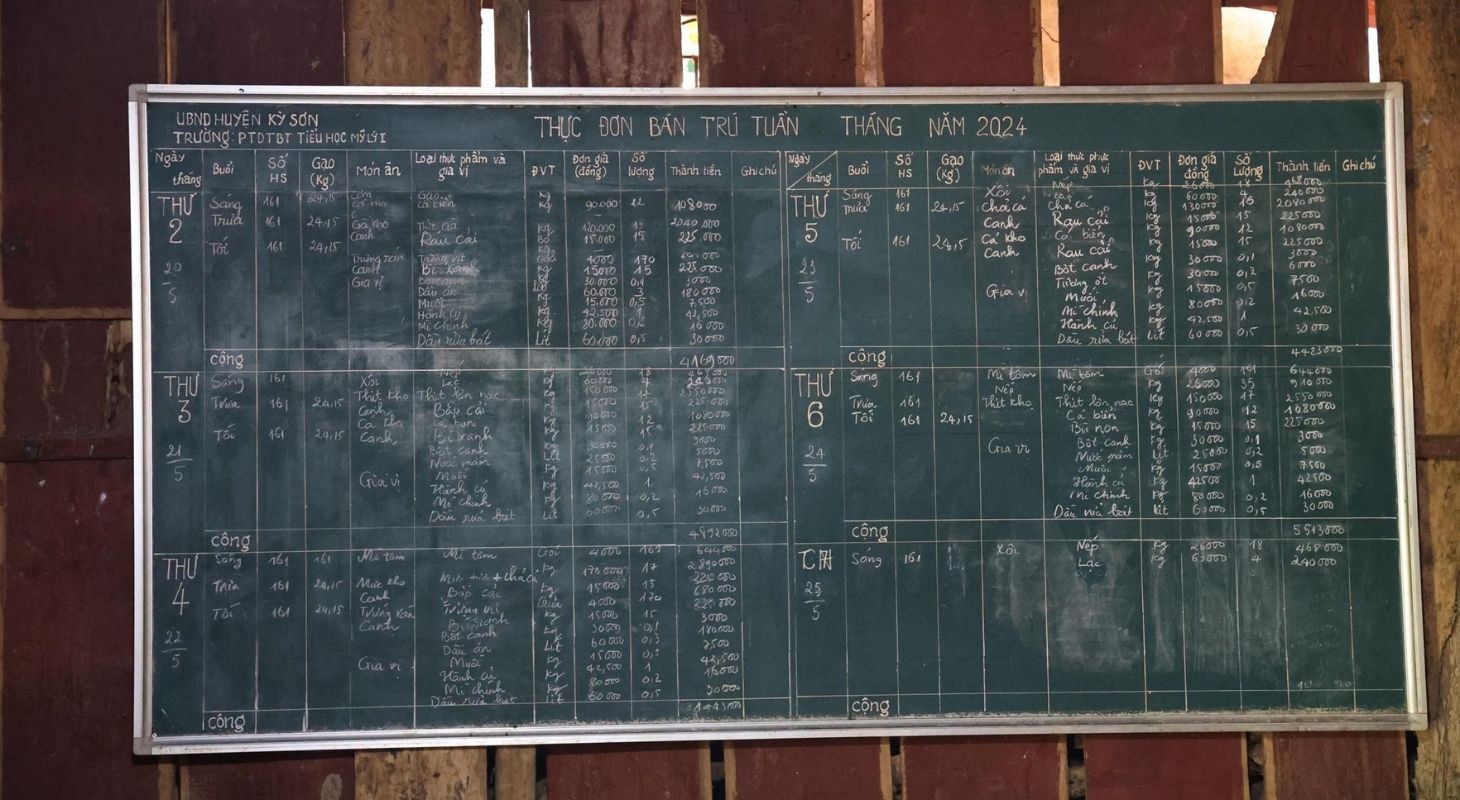 UBND HUYỆN KỲ SƠN
TRƯỜNG: PTDTBT TIỂU HỌC MỸ LÝ I
THỰC ĐƠN BÁN TRÚ TUẦN THÁNG NĂM 2024
Ngày tháng Buổi Số HS Gạo (Kg) Món ăn Loại thực phẩm và gia vị ĐVT Đơn giá (đồng) Số lượng Thành tiền Ghi chú
THỨ 2 20/5
Sáng 161 24,15 Cá kho Cá biển Kg 90.000 12 1080000
Trưa 161 24,15 Gà kho Thịt gà Kg 120.000 17 2040.000
Canh Rau cải 15000 15 225.000
Tối 161 24,15 Trứng rán Trứng vịt Quả 4000 170
Canh Bí xanh Kg 15000 15 225000
Gia vị Bột canh 30.000 0,1 3000
Dầu ăn 60.000 3 180000
Muối Kg 15.000 0,5 7500
Hành củ Kg 42,500 1 42,500
Mì chính Kg 80.000 16000
Dầu rửa bát Lít 60.000 0,5 30000
cộng
THỨ 3 21/5
Sáng 161 Xôi Nếp 26000 18 468000
Lạc Kg 60000 4 240000
Trưa 161 24,15 Thịt kho Thịt lợn nạc 150000 17 2550000
Canh Bắp cải 15000 15 225000
Cá kho Cá biển 90000 12 1080000
Tối 161 24,15 Canh Bí xanh Kg 15000 15 225000
Bột canh Kg 30000 0,1 3000
Nước mắm Lít 25000 0,2 5000
Gia vị Muối Kg 15000 0,5 7,500
Hành củ Kg 42,500 1 42,500
Mì chính Kg 80000 0,2 16000
Dầu rửa bát Lít 60000 0,5 30000
cộng 4892000
THỨ 4 22/5
Sáng 161 161 Mì tôm Mì tôm Gói 4000 161 644000
Trưa 161 24,15 Mực kho + chả cá 170000 17 2890000
Canh Bắp cải Kg 15000 15 225000
Tối 161 24,15 Trứng rán Trứng vịt Quả 4000 170 680000
Canh Bí xanh Kg 15000 15 225000
Bột canh Kg 30000 0,1 3000
Dầu ăn Lít 60000 180000
Gia vị Muối Kg 15000 0,5 7500
Hành củ Kg 42,500 1 42,500
Mì chính Kg 80000 0,2 16000
Dầu rửa bát Lít 60000 0,5 30000
cộng
Ngày tháng Buổi Số HS Gạo (Kg) Món ăn Loại thực phực phẩm và gia vị ĐVT Đơn giá đồng Số lượng Thành tiền Ghi chú
THỨ 5 23/5
Sáng 161 Xôi Nếp Kg 26000 18 468000
Lạc 60000 4 240000
Trưa 161 24,15 Chả cá Chả cá Kg 130000 16 2080000
Canh Rau cải Kg 15000 15 225000
Tối 161 24,15 Cá kho Cá biển Kg 90000 12 1080000
Canh Rau cải Kg 15000 15 225000
Bột canh Kg 30000 0,1 3000
Tương ớt 30000 0,2 6000
Gia vị Muối Kg 15000 0,5 7500
Mì chính Kg 80000 0,2 16000
Hành củ Kg 42,500 1 42,500
Dầu rửa bát Lít 60000 0,5 30000
cộng 4423000
THỨ 6 24/5
Sáng 161 Mì tôm Mì tôm Gói 4000 161 644000
Nếp Nếp Kg 26000 35 910000
Trưa 161 Thịt kho Thịt lợn nạc Kg 150000 17 2550000
Tối 161 24,15 Cá biển Kg 90000 12 1080000
Kg 15000 15 225000
Gia vị Bột canh Kg 30000 0,1 3000
Nước mắm Lít 25000 0,2 5000
Muối Kg 15000 0,5 7500
Hành củ Kg 42500 1 42500
Mì chính Kg 80000 0,2 16000
Dầu rửa bát Lít 60000 0,5 30000
cộng 5513000
CN 25/5
Sáng 161 Xôi Nếp Kg 26000 18 468000
Lạc Kg 4 240000
cộng